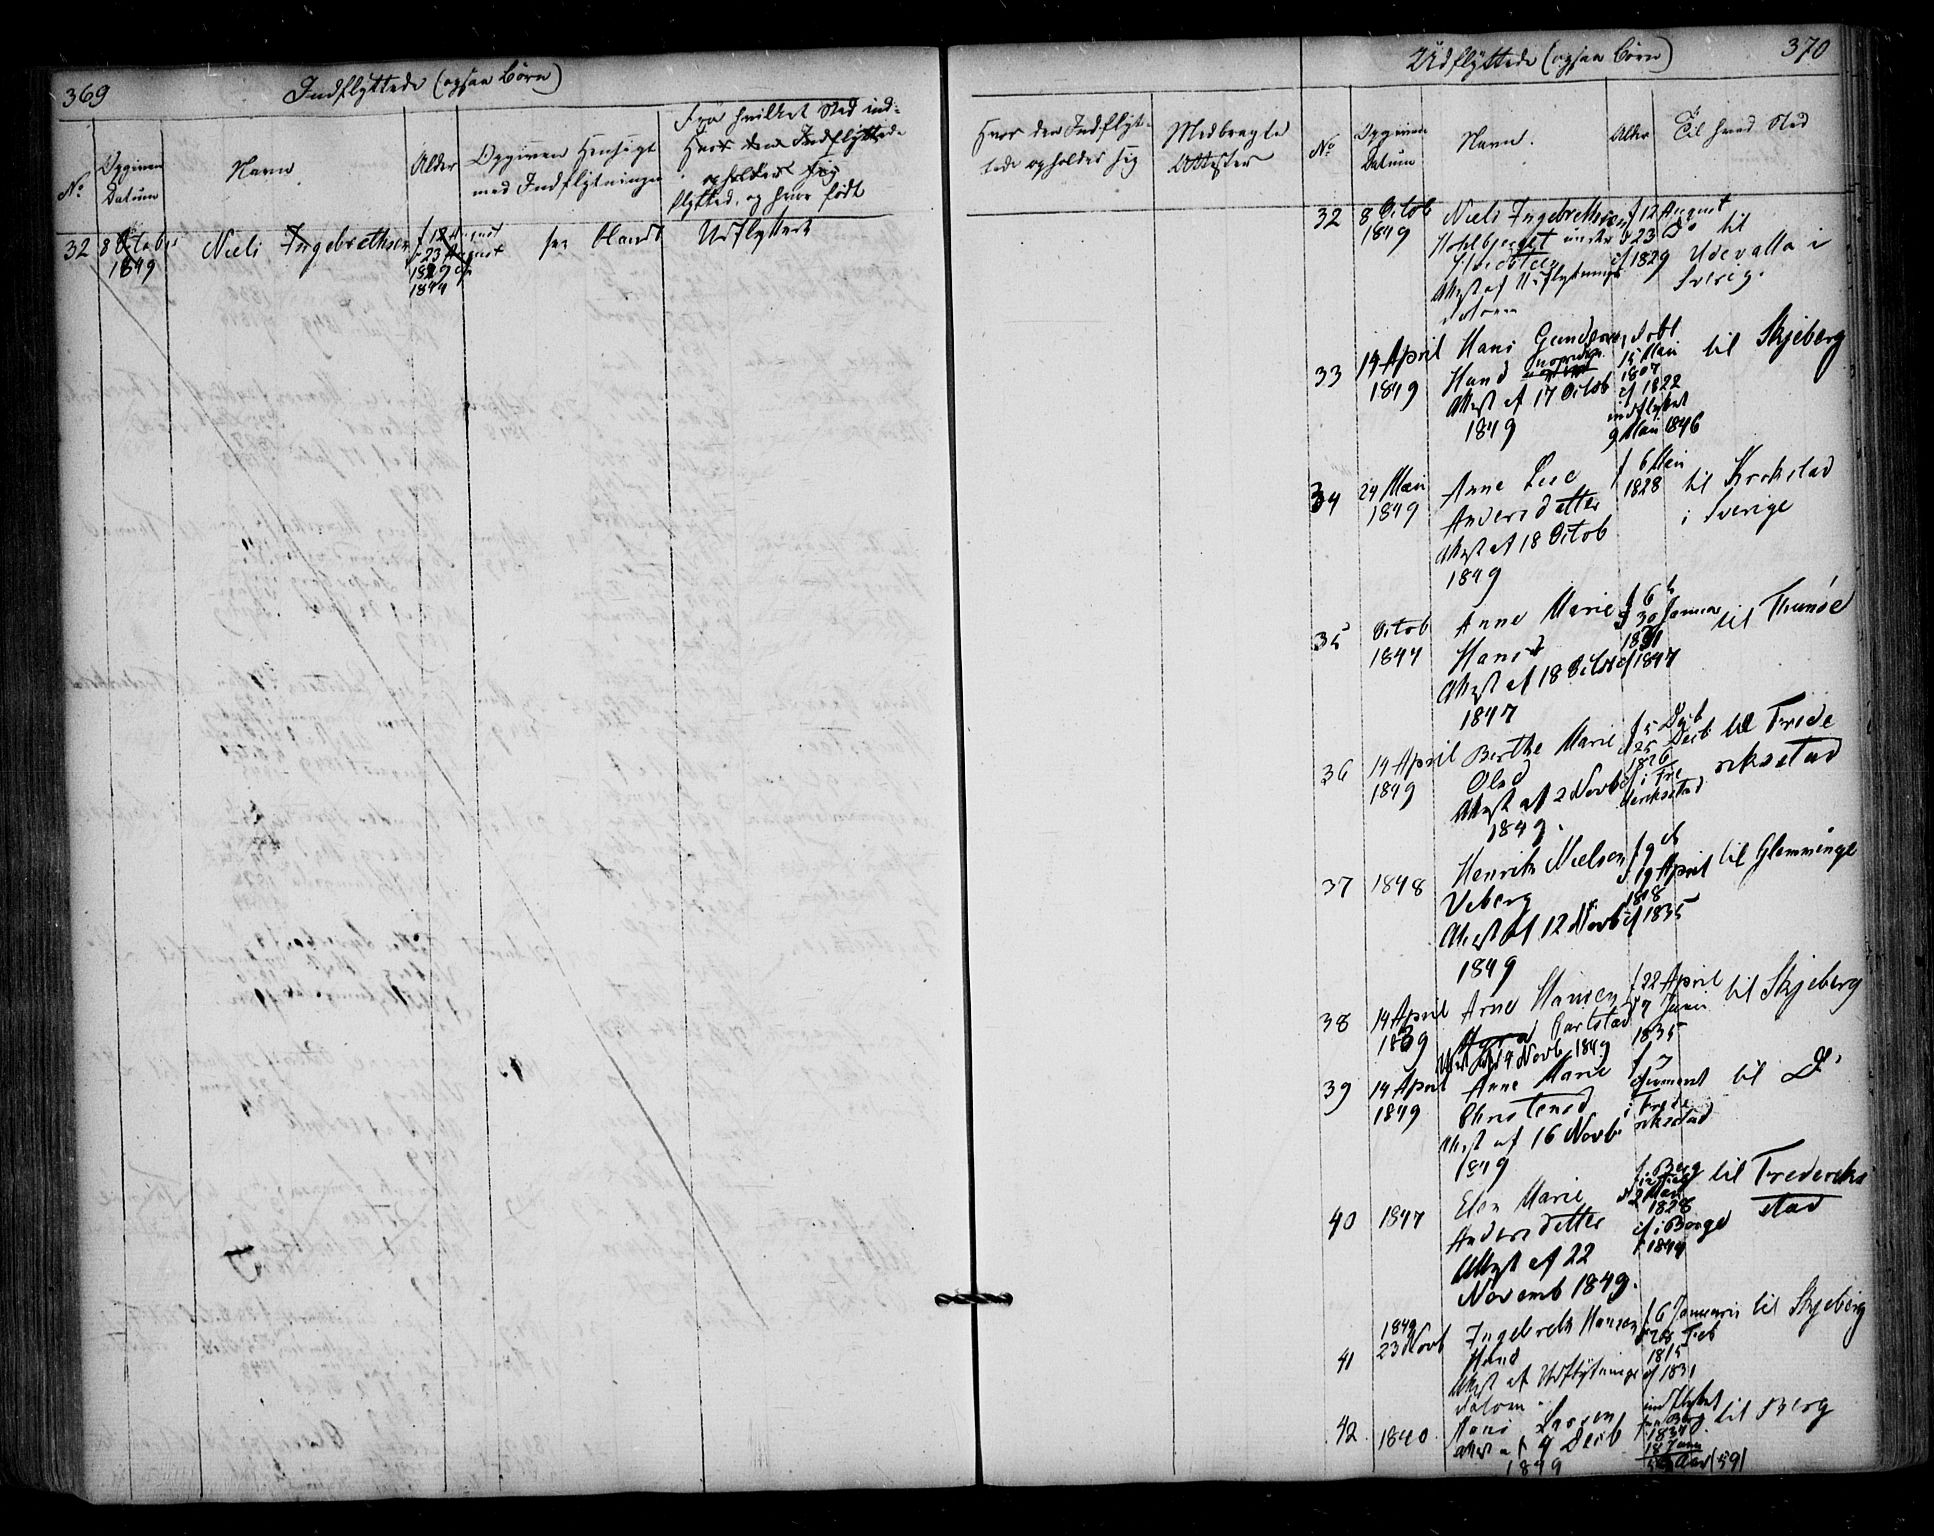 369
Indflyttede (ogsaa Börn)
No
Opgiven Datum
Navn
Alder
Opgiven Hensigt med Indflytningen
Fra hvilket Sted ind-
Hvor den Indflyttede
opholder sig
flytted, og hvor födt
32
8 Octob
1849
Niels Ingebrethsen
f 12 August
d 23 August
1829 cf
1844
blandt Udflyttede
Hvor den Indflyt-
tede opholder sig
Medbragte
Attester
Udflyttede (ogsaa Börn)
370
No
Opgiven
Datum
Navn.
Alder
Til hvad Sted
32
8 Octob
1849
Niels Ingebrethsen
under
Attest af Udflytnings
datoen
f 12 August
d 23 do
cf 1829
til
Udevalla i
Sverig.
33
14 April
1849
Hans Gundersen
Hand
Attest af 17 Octob
1849
fobt
15 Mai
1807
cf 1822
indflyttet
9 Mai 1846
til Skjeberg
34
24 Mai
1849
Anne Lise
Andersdatter
Attest af 18 Octob
1849
f 6 Mai
1828
til Krokstad
i Sverige
35
Octob
1847
Anne Marie
Hansd
Attest af 18 Octob
1847
f 6
d 30 Januar
1831
cf 1847
til Thunöe
36
14 April
1849
Berthe Marie
Olsd
Attest af 2 Novb
1849.
f 5 Decb
d 25 Decb
1826
cf i Fre
deriksstad
til Frede
riksstad
37
1848
Henrik Nielsen
Veberg
Attest af 12 Novb
1849
f 9 cf
d 19 April
1818
cf 1835
til Glemminge
38
14 April
1839
Arne Hansen
Carlstad
Attest af 14 Novb 1849
f 22 April
d 7 Juni
1835
til Skjeberg
39
14 April
1849
Anne Marie
Christensd
Attest af 16 Novb
1849
i Frede
riksstad
til do
40
1847
Elen Marie
Andersdatter
Attest af 22
Novemb 1849.
f i Berg
2 Mai
1828
cf i Borge
1844
til Frederiks
stad
41
1849
23 Novb
Ingebreth Hansen
Hand
Attest af Udflytnings
datoen
f 6 Januari
d 26 Feb
1815
cf 1831
til Skjeberg
42
1840
Hans Larsen
Attest af 4 Decb
1849
indflyttet
fra Berg
1837
18 Juni
til Berg